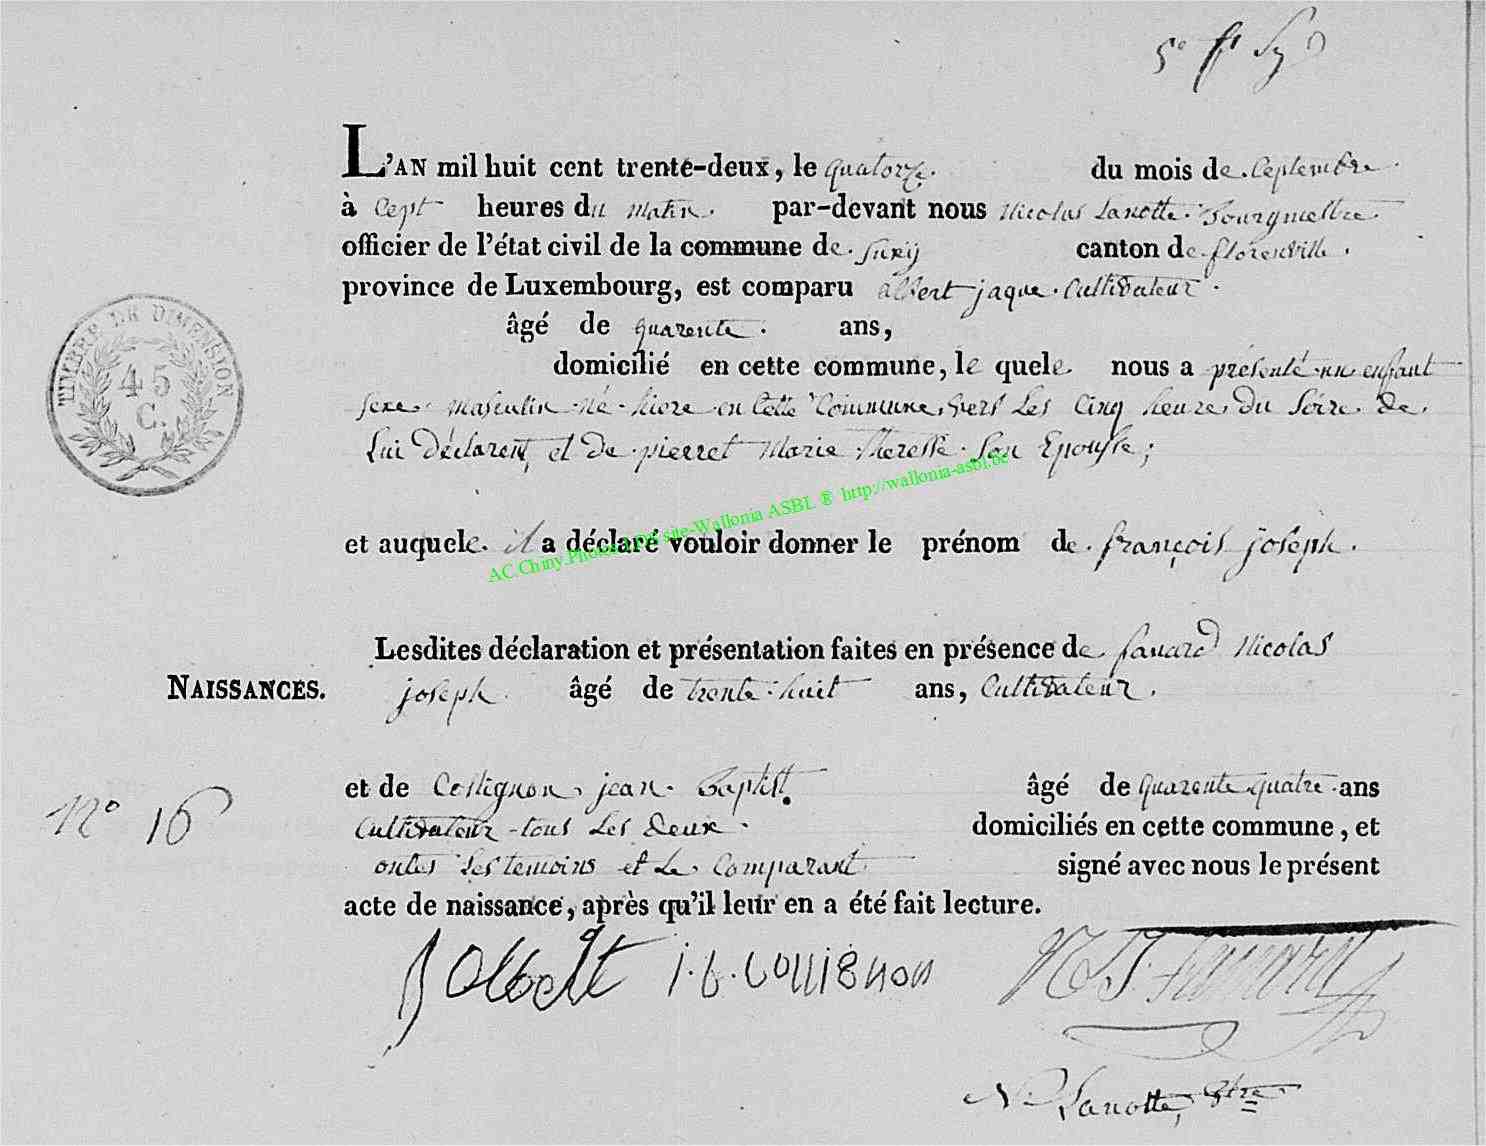 L'AN mil huit cent trente-deux, le quatorze. du mois de Ceptembre
à Cept heures du matin. par-devant nous Nicolas Lanotte. Bourgmettre.
officier de l'état civil de la commune de Suxy canton de florenville.
province de Luxembourg, est comparu albert jaque. Cultivateur.
TIMBRE DE DIMENSION
45
C.
âgé de quarente. ans,
domicilié en cette commune, le quele nous a présenté un enfant
sexe masculin né hiere en Cette Commune, vers Les Cinq heure, du Soire. de
Lui déclarent, et de pierret Marie theresse Son Epousse;
AC.Chiny.Photos LDW site-Wallonia ASBL ® http://wallonia-asbl.be
et auquele. il a déclaré vouloir donner le prénom de. françois joseph.
Lesdites déclaration et présentation faites en présence de fanard Nicolas
NAISSANCES.
joseph. âgé de trente-huit ans, Cultivateur.
N° 16
et de Collignon, jean. Baptist. âgé de Quarente quatre ans
Cultivateur tous Les deux. domiciliés en cette commune, et
ontes Les temoins et Le Comparant signé avec nous le présent
acte de naissance, après qu'il leur en a été fait lecture.
J Albert j. b. collignon NJ fanard
N Lanotte, Btre